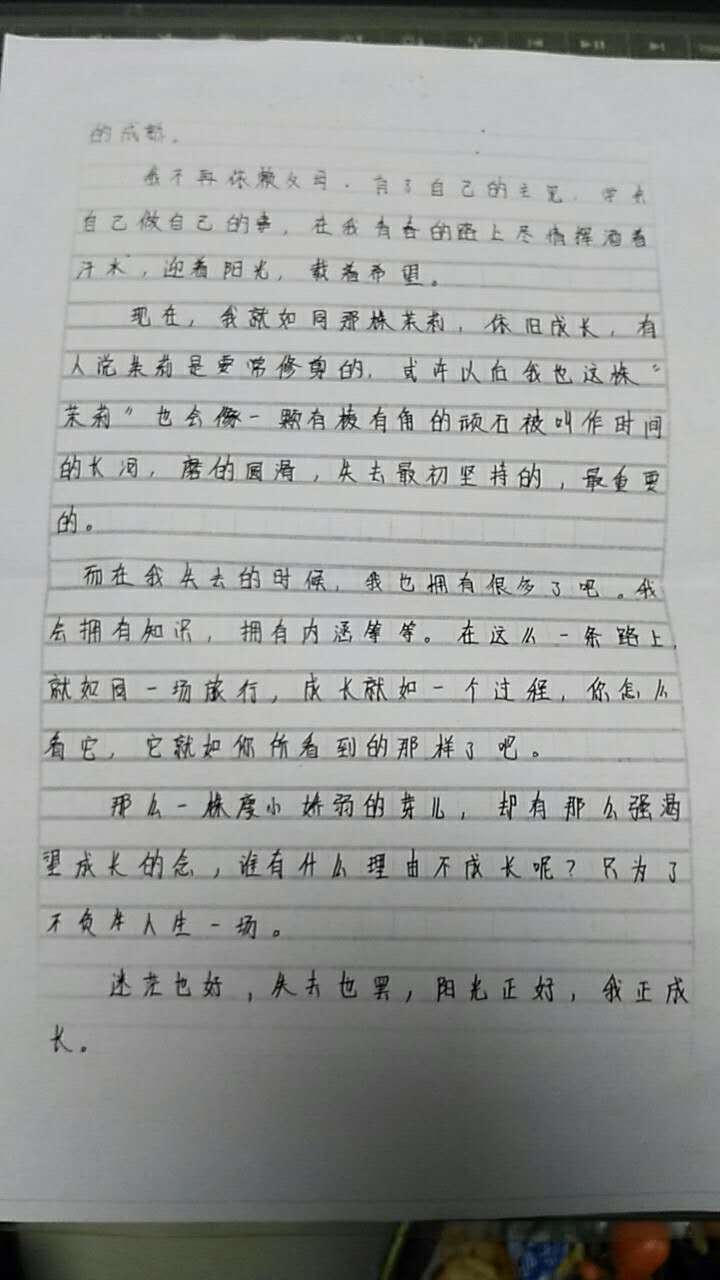 的成熟。
我不再依赖父母,有了自己的主见,学去
自己做自己的事,在我青春的路上尽情挥洒着
汗水,迎着阳光,载着希望。
现在,我就如同那株茉莉,依旧成长,有
人说茉莉是要常修剪的,或许以后我也这株“
茉莉”也会像一颗有棱有角的顽石被叫作时间
的长河,磨的圆滑,失去最初坚持的,最重要
的。
而在我失去的时候,我也拥有很多了吧。我
会拥有知识,拥有内涵等等。在这么一条路上,
就如同一场旅行,成长就如一个过程,你怎么
看它,它就如你所看到的那样了吧。
那么一株瘦小娇弱的芽儿,却有那么强渴
望成长的念,谁有什么理由不成长呢?只为了
不负人生一场。
迷茫也好,失去也罢,阳光正好,我正成
长。